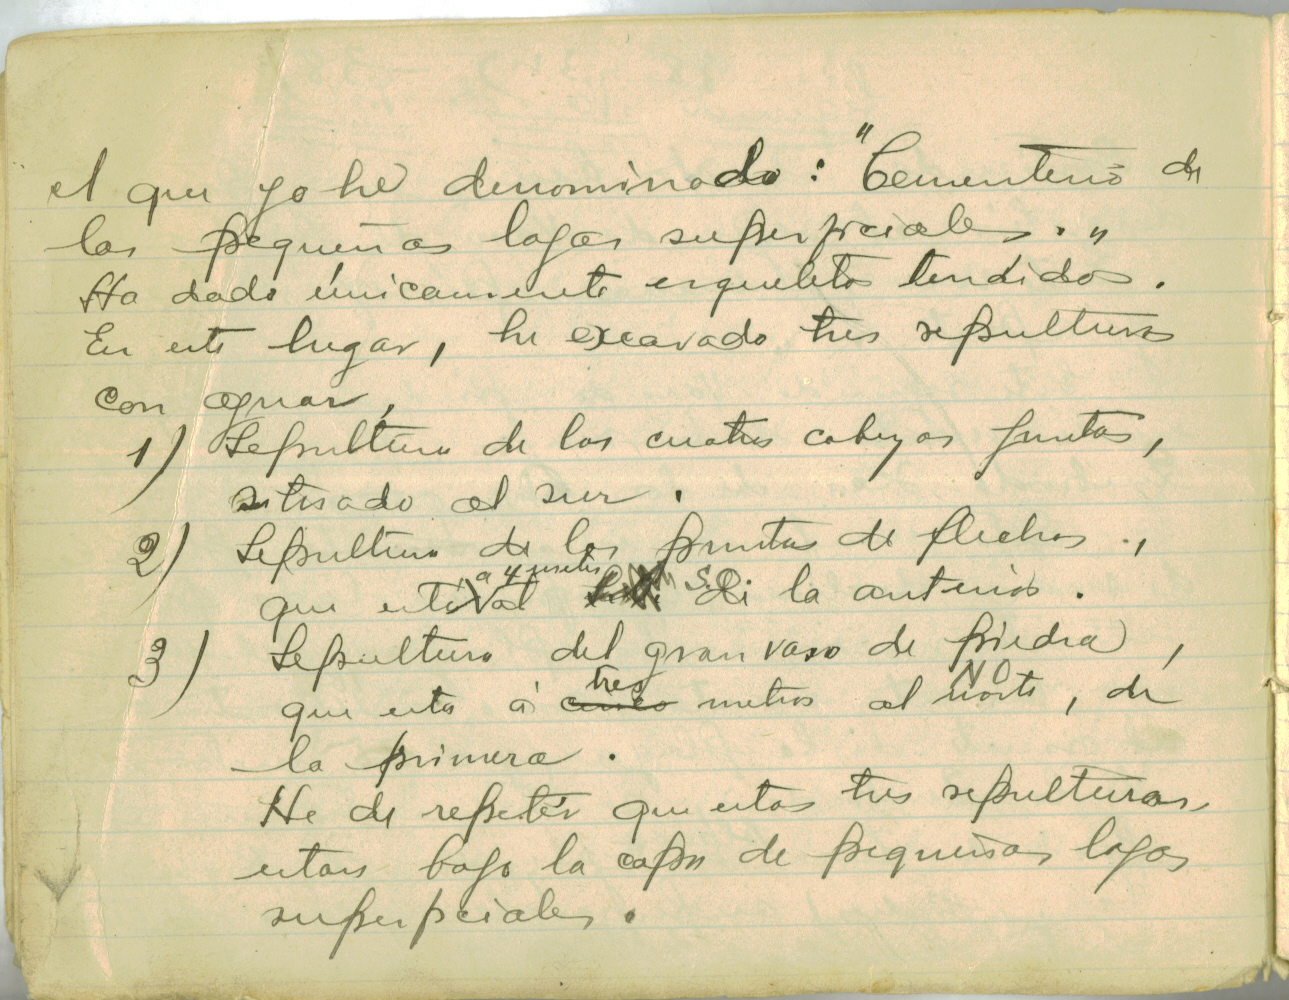 el que yo he denominado: "Cementerio de
las pequeñas lajas superficiales."
Ha dado únicamente esqueletos tendidos.
En este lugar, he excavado tres sepulturas
con
1) Sepultura de las cuatro cabezas juntas,
situado al sur.
2) Sepultura de las puntas de flechas,
que está a 4 metros al S.O. de la anterior.
3) Sepultura del gran vaso de piedra,
que esta á tres metros al NO, de
la primera.
He de repetir que estas tres sepulturas
estan bajo la capa de pequeñas lajas
superficiales.